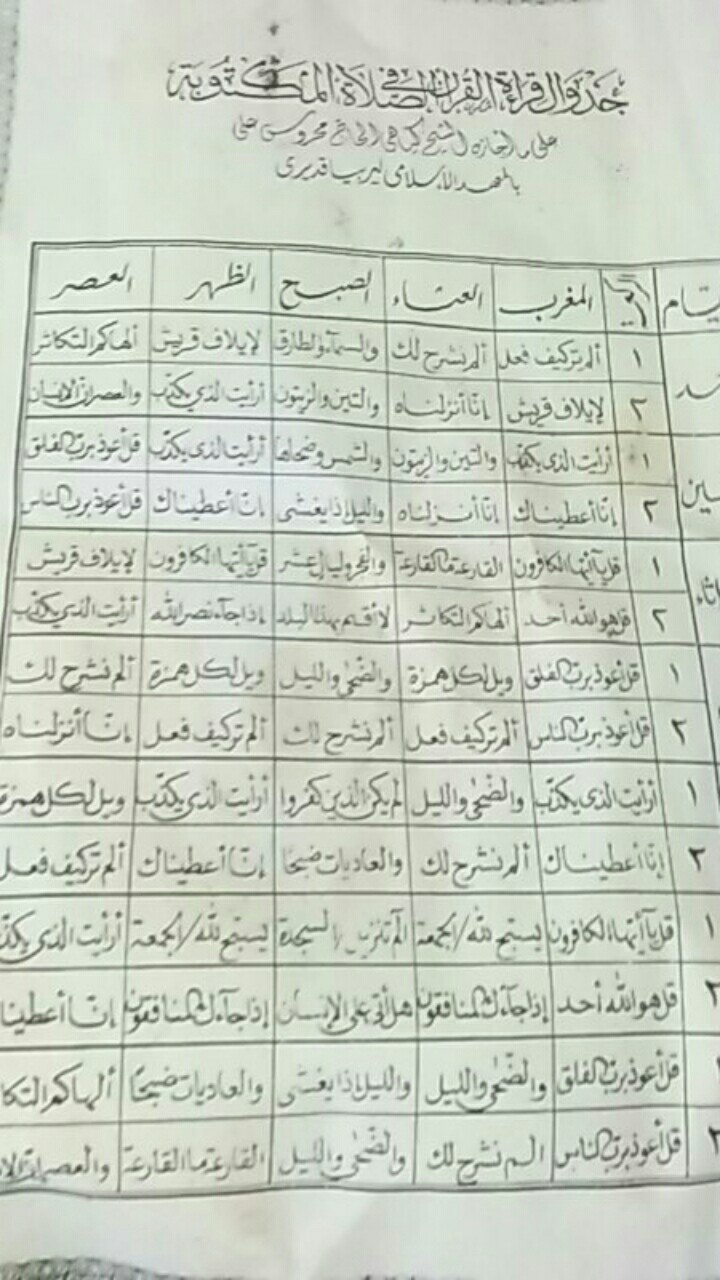 جدوال قراءة القرآن في صلاة المكتوبة
على ما أجازه الشيخ كياهي الحاج محروس علي
بالمعهد الإسلامي ليربيا قديري
المغرب العشاء الصبح الظهر العصر
١ ألم تر كيف فعل ألم نشرح لك والسمآء والطارق لإيلاف قريش ألهاكم التكاثر
٢ لإيلاف قريش إنا أنزلناه والتين والزيتون أرأيت الذي يكذب والعصر إن الإنسان
١ أرأيت الذي يكذب والتين والزيتون والشمس وضحاها أرأيت الذي يكذب قل أعوذ برب الفلق
٢ إنا أعطيناك إنا أنزلناه والليل إذا يغشى إنا أعطيناك قل أعوذ برب الناس
١ قل يآ أيها الكافرون القارعة ما القارعة والفجر وليال عشر قل يآ أيها الكافرون لإيلاف قريش
٢ قل هو الله أحد ألهاكم التكاثر لا أقسم بهذا البلد إذا جآء نصر الله أرأيت الذي يكذب
١ قل أعوذ برب الفلق ويل لكل همزة والضحى والليل ويل لكل همزة ألم نشرح لك
٢ قل أعوذ برب الناس ألم تر كيف فعل ألم نشرح لك ألم تر كيف فعل إنا أنزلناه
١ أرأيت الذي يكذب والضحى والليل لم يكن الذين كفروا أرأيت الذي يكذب ويل لكل همزة
٢ إنا أعطيناك ألم نشرح لك والعاديات ضبحا إنا أعطيناك ألم تر كيف فعل
١ قل يآ أيها الكافرون يسبح لله / الجمعة الم تنزيل / السجدة يسبح لله / الجمعة أرأيت الذي يكذب
٢ قل هو الله أحد إذا جآءك المنافقون هل أتى على الإنسان إذا جآءك المنافقون إنا أعطينا
١ قل أعوذ برب الفلق والضحى والليل والليل إذا يغشى والعاديات ضبحا ألهاكم التكا
٢ قل أعوذ برب الناس الم نشرح لك والضحى والليل القارعة ما القارعة والعصر إن الا